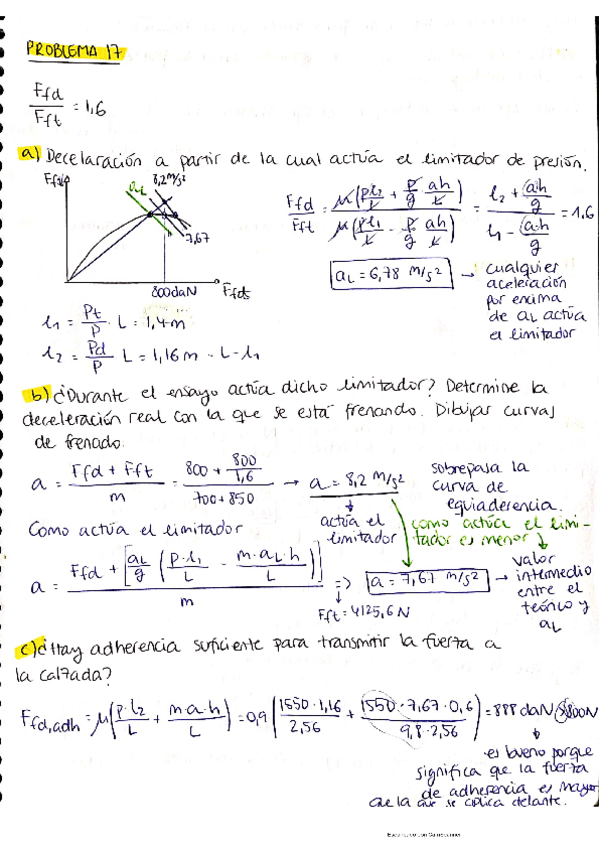 PROBLEMA 17
Ffd / Fft = 1,6
a) Decelaración a partir de la cual actúa el limitador de presión.
Fft
aL
8,2 m/s²
7,67
800 daN
Ffd
Ffd / Fft = μ(P·l2/L + P/g · ah/L) / μ(P·l1/L - P/g · ah/L) = (l2 + (a·h/g)) / (l1 - (a·h/g)) = 1,6
aL = 6,78 m/s² → cualquier
aceleración
por encima
de aL actúa
el limitador
l1 = Pt/P · L = 1,4 m
l2 = Pd/P L = 1,16 m - L - l1
b) ¿Durante el ensayo actúa dicho limitador? Determine la
deceleración real con la que se está frenando. Dibujar curvas
de frenado.
a = (Ffd + Fft) / m = (800 + 800/1,6) / (700 + 850) → a = 8,2 m/s²
sobrepasa la
curva de
equiaderencia.
actúa el
limitador
como actúa el limi-
tador es menor
Como actúa el limitador
a = (Ffd + [aL/g (P·l1/L - m·aL·h/L)]) / m => a = 7,67 m/s² → valor
intermedio
entre el
teórico y
aL
Fft = 4125,6 N
c) ¿Hay adherencia suficiente para transmitir la fuerza a
la calzada?
Ffd,adh = μ(P·l2/L + m·a·h/L) = 0,9 (1550·1,16/2,56 + 1550·7,67·0,6/9,8·2,56) = 888 daN > 8800N
es bueno porque
significa que la fuerza
de adherencia es mayor
que la que se aplica delante.